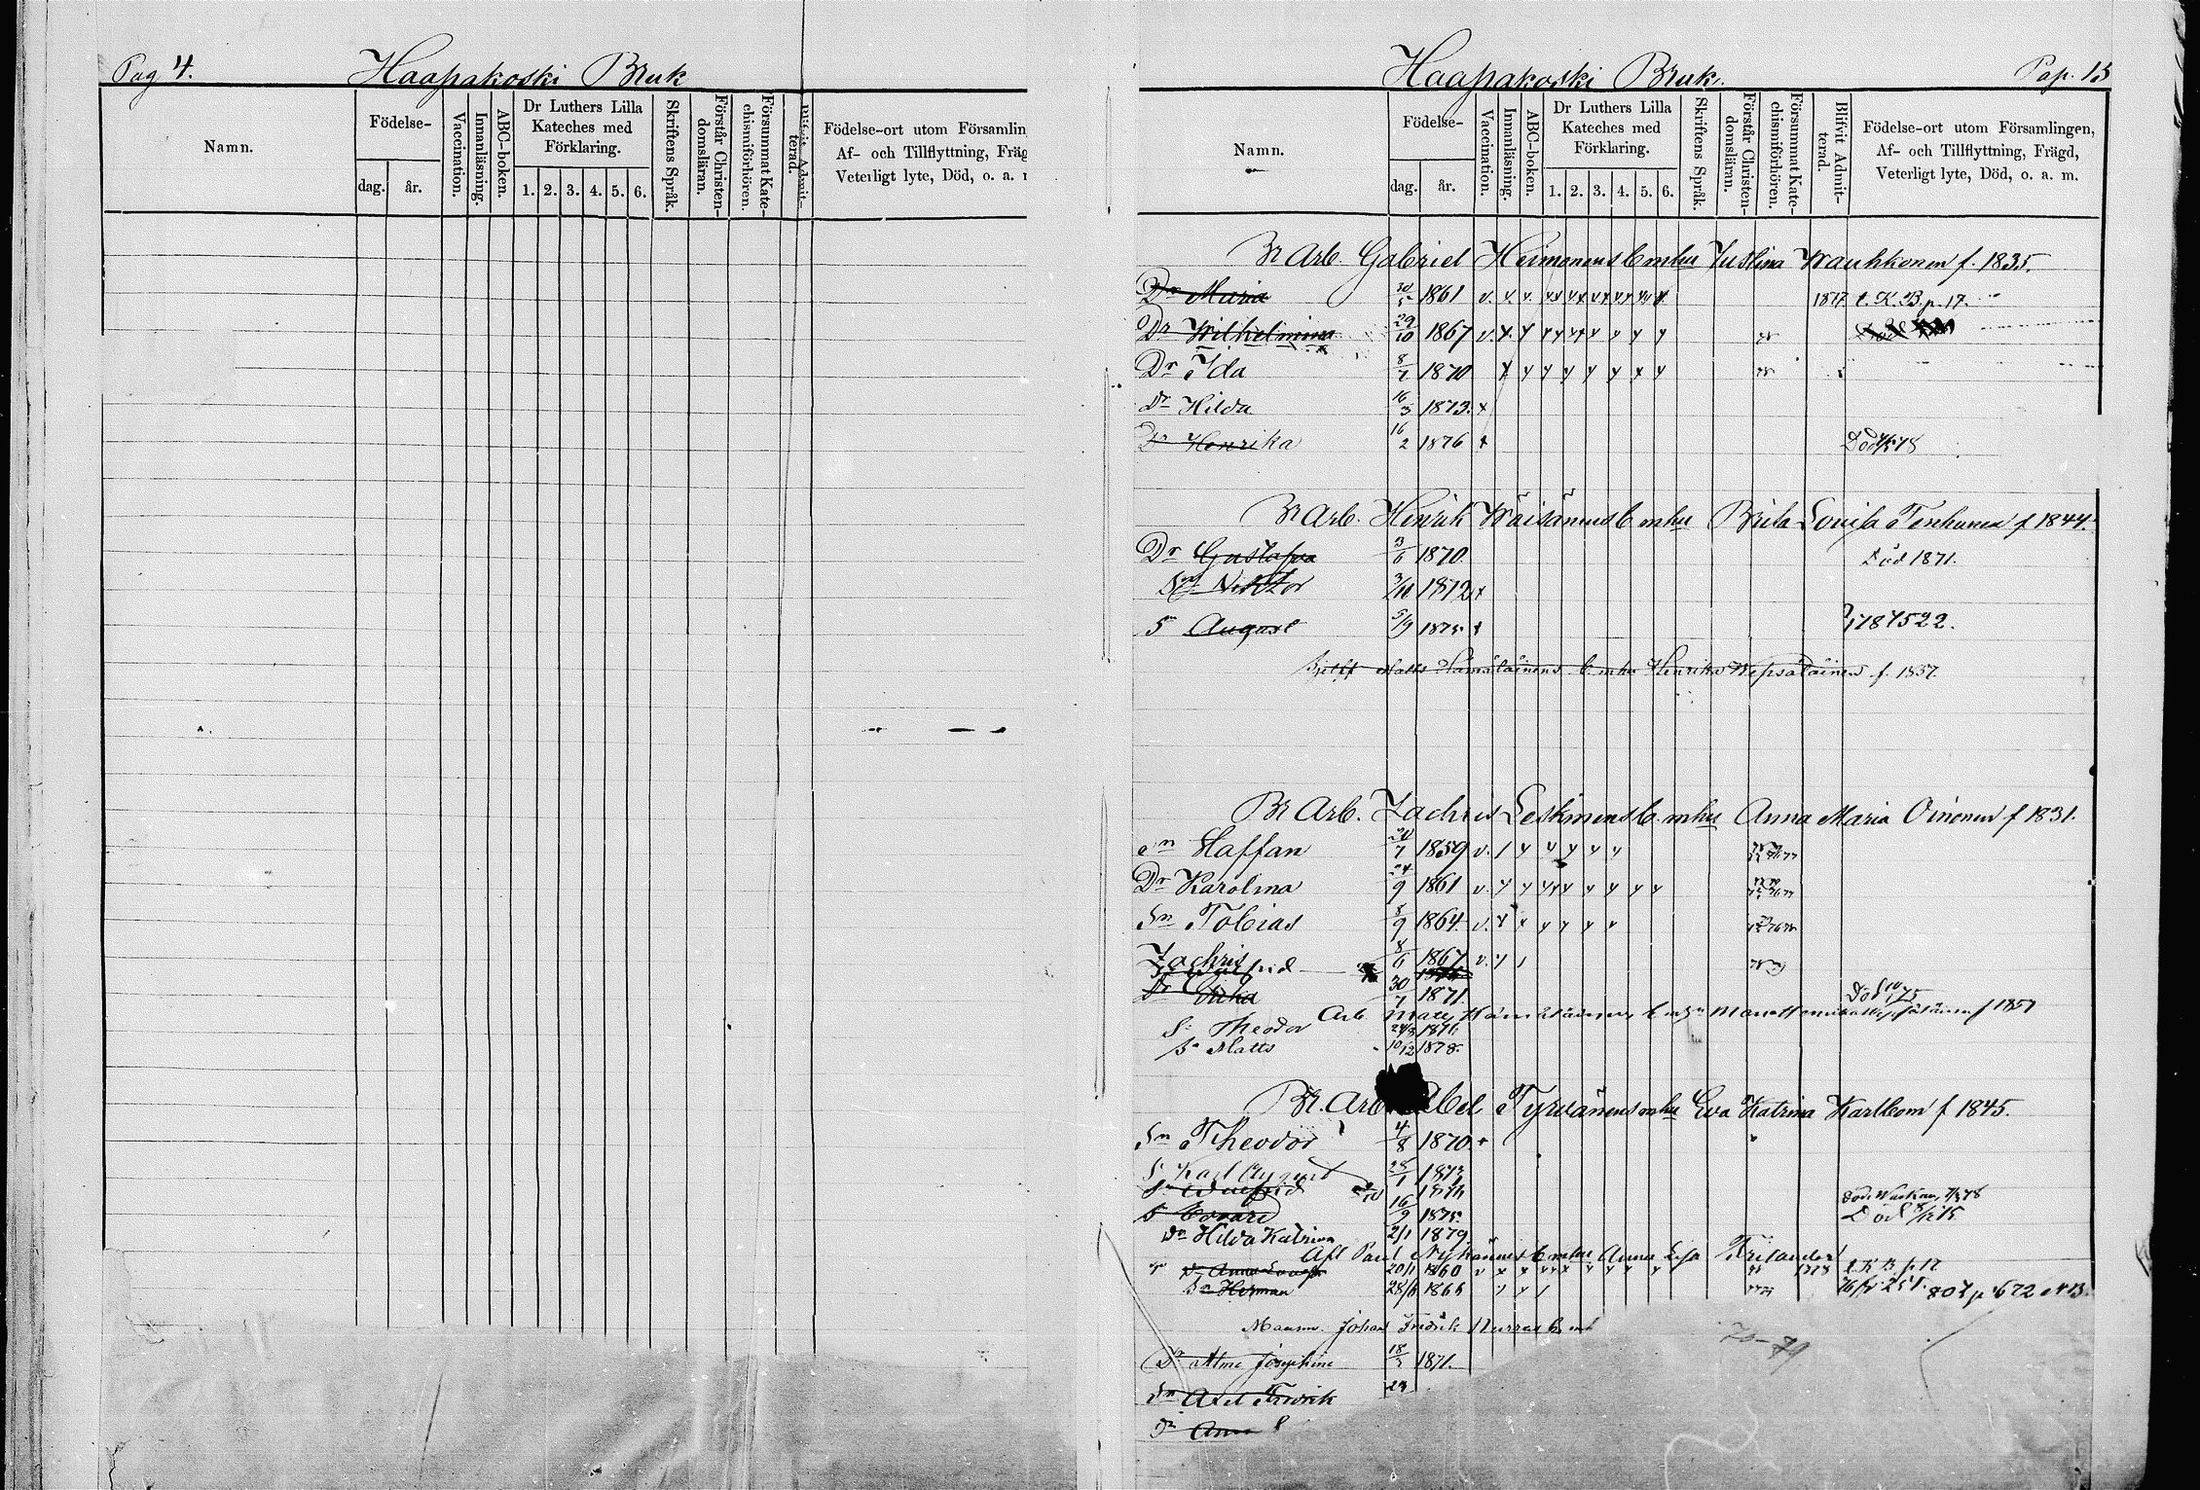 Pag 4. Haapakoski Bruk
Namn.
Födelse-
dag. år.
Vaccination.
Innanläsning.
ABC-boken.
Dr Luthers Lilla
Kateches med
Förklaring.
1. 2. 3. 4. 5. 6.
Skriftens Språk.
Förstår Christen-
domsläran.
Försummat Kate-
chismiförhören.
Blifvit Admit-
terad.
Födelse-ort utom Församlin
Af- och Tillflyttning, Fräg
Veterligt lyte, Död, o. a. m
Haapakoski Bruk. Pag. 15
Namn.
Födelse-
dag. år.
Vaccination.
Innanläsning.
ABC-boken.
Dr Luthers Lilla
Kateches med
Förklaring.
1. 2. 3. 4. 5. 6.
Skriftens Språk.
Förstår Christen-
domsläran.
Försummat Kate-
chismiförhören.
Blifvit Admit-
terad.
Födelse-ort utom Församlingen,
Af- och Tillflyttning, Frägd,
Veterligt lyte, Död, o. a. m.
Br Arb. Gabriel Heimonens b m hu Justina Kauhkonen f. 1835.
Dr Maria 1861 v. 1877 t. K. B. p. 17.
Dr Wilhelmina 29/10 1867 v.
Dr Ida 1870
Dr Hilda 16/3 1873. x
Dr Henrika 16/2 1876 x Död
Br Arb. Henrik Wäisänens b m hu Brita Lovisa Terhunen f 1844.
Dr Gustafva 3/6 1870. Död 1871.
Sn Viktor 3/10 1872 x
Sn August 5/9 1875. x
Matts Hämäläinens b m hu Henrika Wepsäläinen f. 1837.
Br Arb. Zachris Leskinens b. m hu Anna Maria Oinonen f 1831.
Sn Staffan 20/7 1859 v.
Dr Karolina 24/9 1861 v.
Sn Tobias 8/9 1864. v.
Zachris 8/6 1867 v.
Dr 30/7 1871. Död
Arb. Mats Hämäläinens f 1857
S. Theodor 1876
Sn Matts 10/12 1878.
Br. Arb Abel Tyrväinens m hu Eva Katrina Karlbom f 1845.
Sn Theodor 4/8 1870. x
S. Karl August 25/1 1873
Sn Walfrid
S. Edvard 16/9 1875. Död
Dr Hilda Katrina 2/1 1879.
Paul Nykänens b m hu Anna Lisa
Dr Anna Lovisa 20/1 1860 v 1878 t. K B p 17
Sn Herman 28/6 1866
Johan Fredrik
Dr Alma Josephine 18/3 1871.
Sn Axel Fredrik 23
Dr Anna
70-79